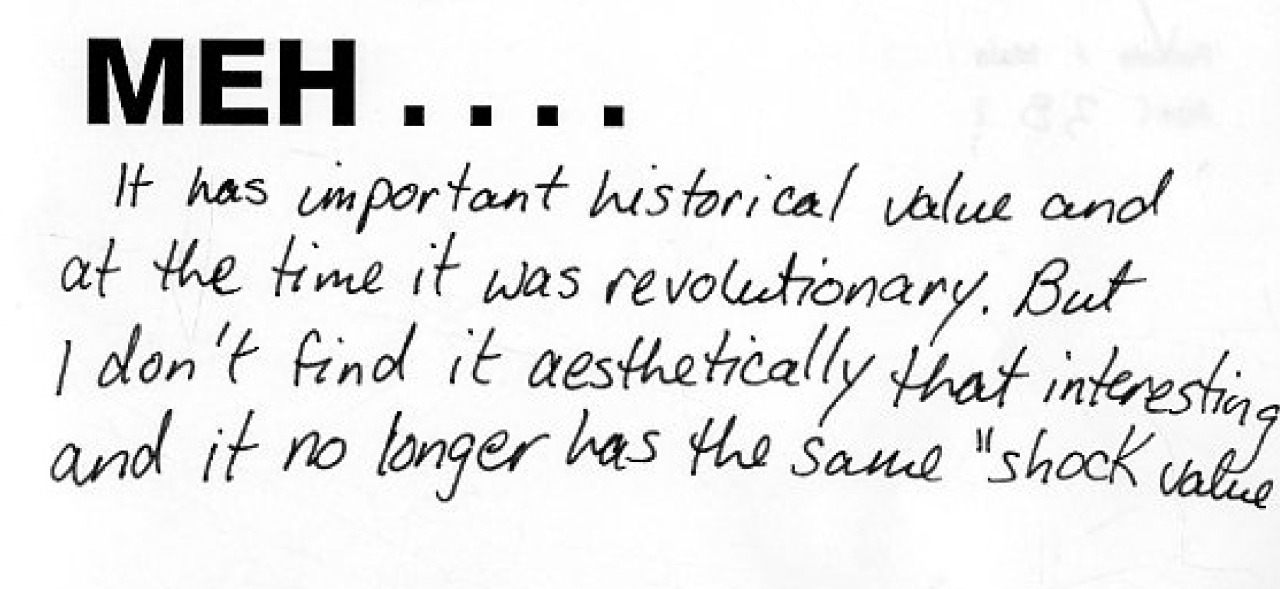 MEH....
It has important historical value and
at the time it was revolutionary. But
I don't find it aesthetically that interesting
and it no longer has the same "shock value